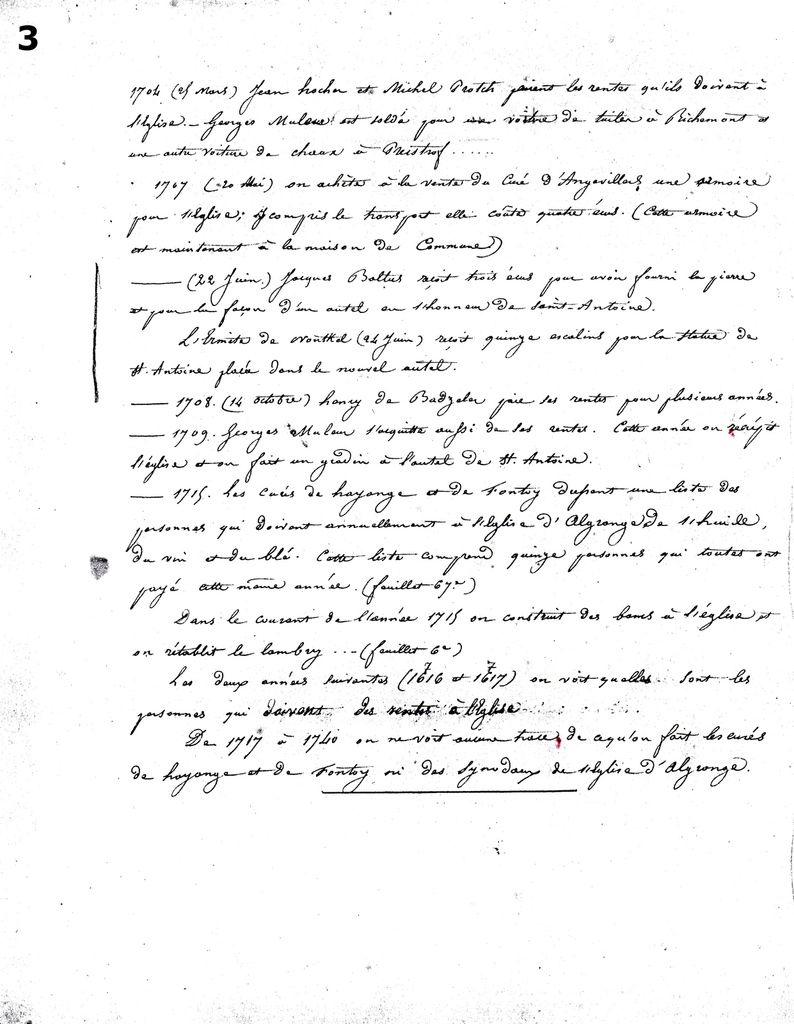 3
1704 (25 Mars) Jean hocher et Michel Protch paient les rentes qu'ils doivent à
l'Eglise. _ Georges Muleur est soldé pour une voiture de tuiler à Richemont et
une autre voiture de chaux à Meistrof ......
1707 (20 Mai) on achète à la vente du Curé d'Angevillers une armoire
pour l'Eglise; y compris le transport elle coûte quatre écus. (Cette armoire
est maintenant à la maison de Commune))
—— (22 Juin.) Jacques Baltus reçoit trois écus pour avoir fourni la pierre
et pour la façon d'un autel en l'honneur de Saint-Antoine.
L'Ermite de (24 Juin) reçoit quinze escalins pour la statue de
St. Antoine placée dans le nouvel autel.
—— 1708. (14 octobre) hanry de Badzeler paie ses rentes pour plusieurs années.
—— 1709. Georges Muleur s'acquitte aussi de ses rentes. Cette année on
l'église et on fait un gradin à l'autel de St. Antoine.
—— 1715. Les curés de hayange et de Fontoy dressent une liste des
personnes qui doivent annuellement à l'Eglise d'Algrange de l'huile,
du vin et du blé. Cette liste comprend quinze personnes qui toutes ont
payé cette même année. (feuillet 67e)
Dans le courant de l'année 1715 on construit des bancs à l'église et
on rétablit le lambry ... (feuillet 6e)
Les deux années suivantes (1616 et 1617) on voit quelles sont les
7 7
personnes qui doivent des rentes à l'Eglise ......
De 1717 à 1740 on ne voit aucune trace de ce qu'on fait les curés
de hayange et de Fontoy ni des Synodaux de l'Eglise d'Algrange.